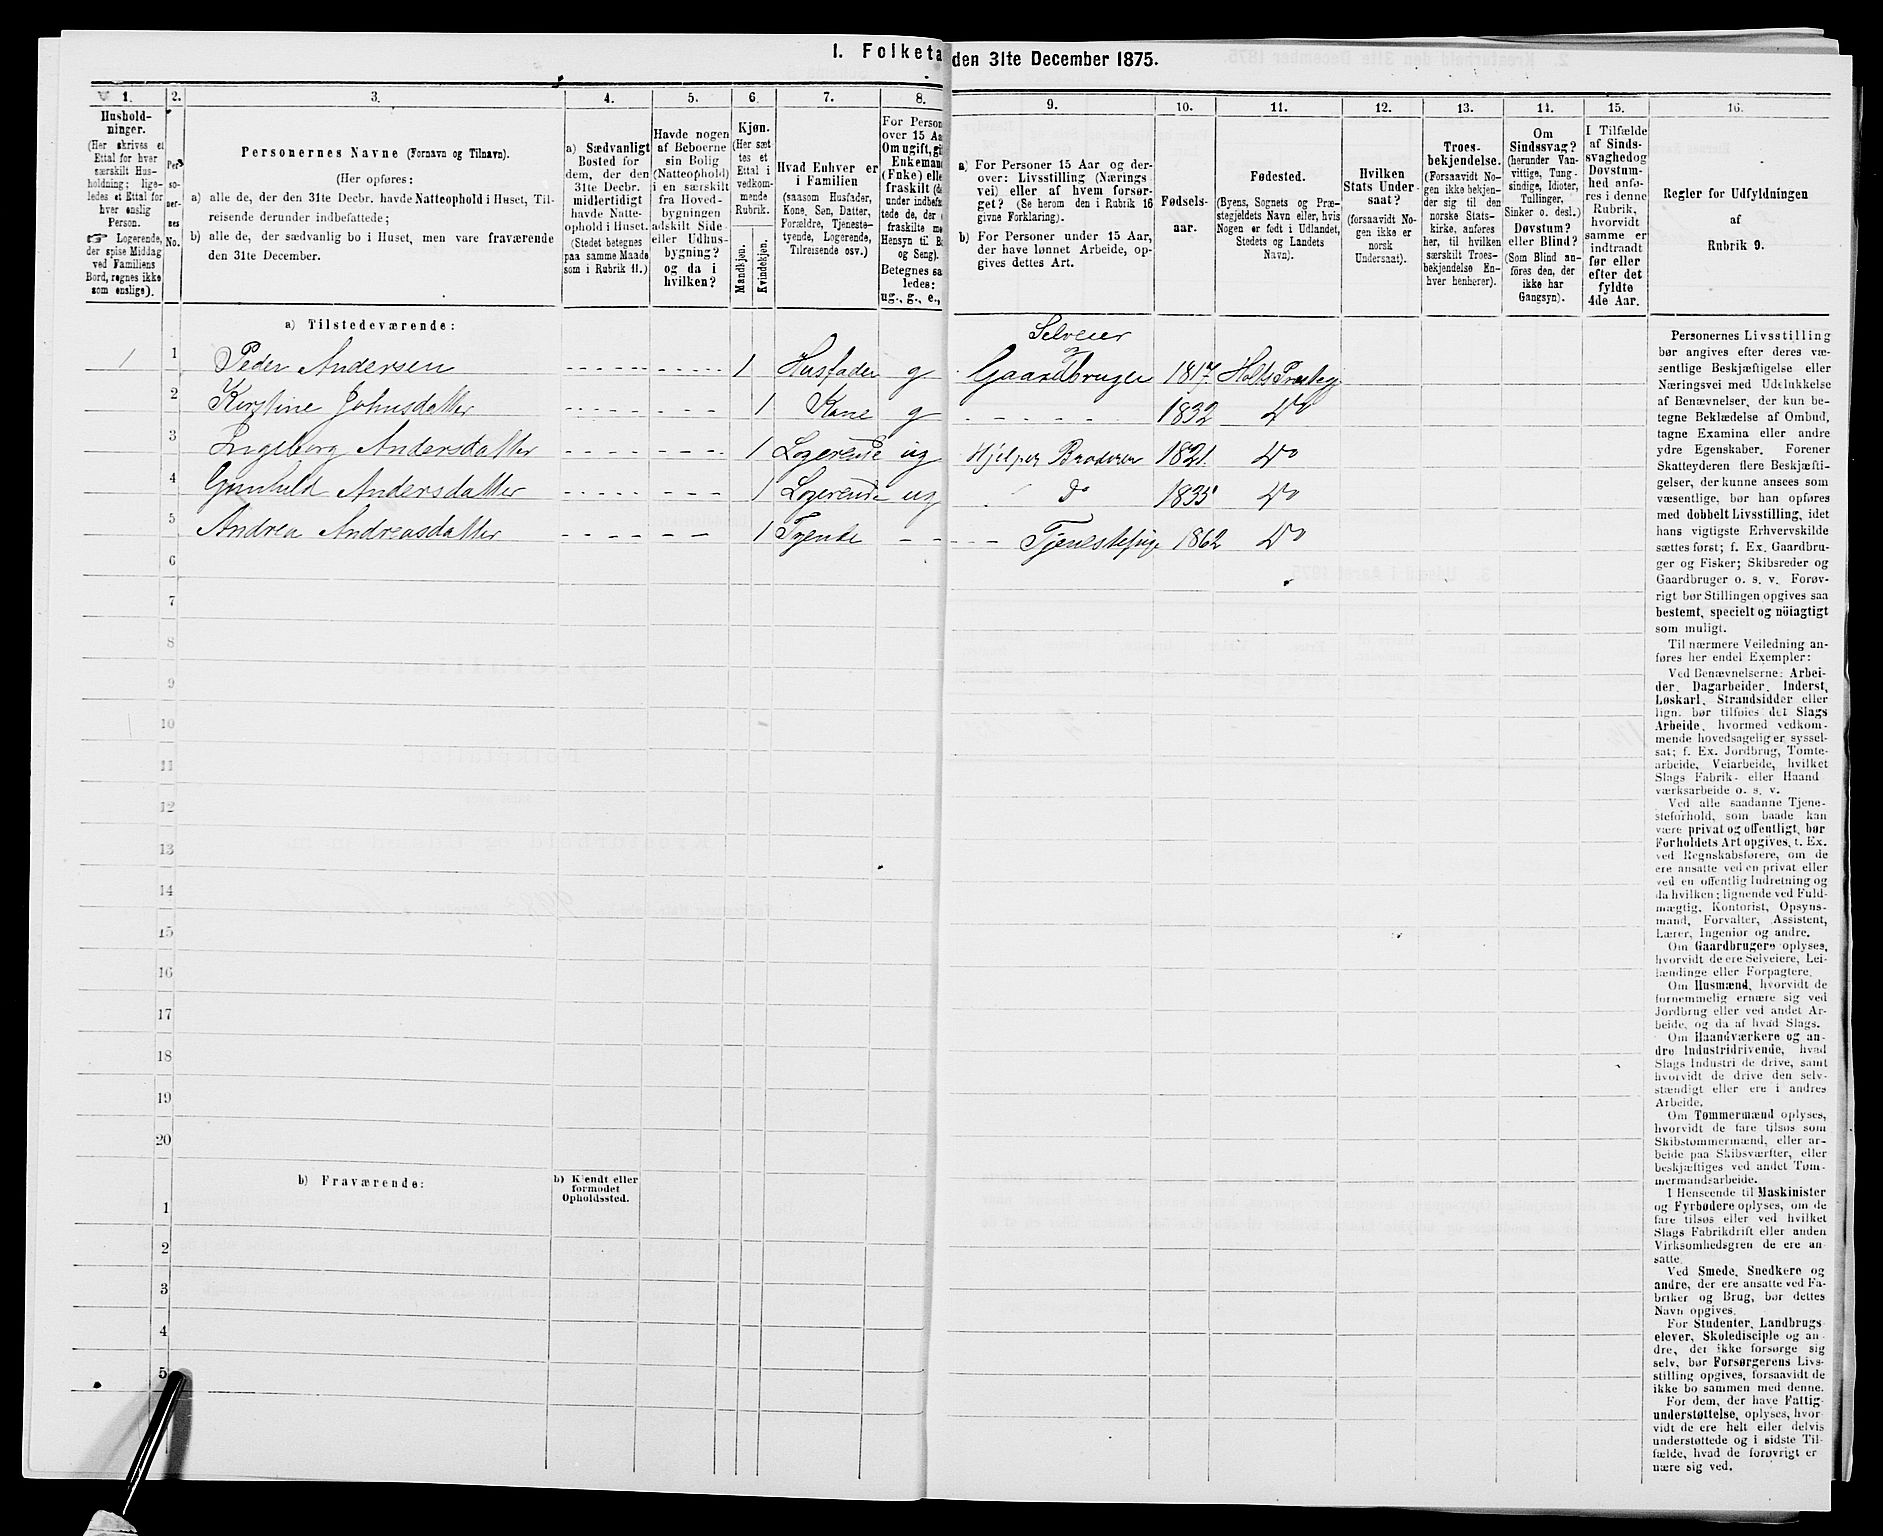 1. Folketæ den 31te December 1875.
1. 2. 3. 4. 5. 6. 7. 8. 9. 10. 11. 12. 13. 14. 15. 16.
Hushold-
ninger.
(Her skrives et
Ettal for hver
særskilt Hus-
holdning; lige-
ledes et Ettal for
hver enslig
Person.
Logerende,
der spise Middag
ved Familiens
Bord, regnes ikke
som enslige).
Per-
so-
ner-
nes
No.
Personernes Navne (Fornavn og Tilnavn).
(Her opføres:
a) alle de, der den 31te Decbr. havde Natteophold i Huset, Til-
reisende derunder indbefattede;
b) alle de, der sædvanlig bo i Huset, men vare fraværende
den 31te December.
a) Sædvanligt
Bosted for
dem, der den
31te Decbr.
midlertidigt
havde Natte-
ophold i Huset.
(Stedet betegnes
paa samme Maade
som i Rubrik 11.)
Havde nogen
af Beboerne
sin Bolig
(Natteophold)
i en særskilt
fra Hoved-
bygningen
adskilt Side-
eller Udhus-
bygning?
og da i
hvilken?
Kjøn.
(Her sæt-
tes et
Ettal i
vedkom-
mende
Rubrik.
Mandkjøn.
Kvindekjøn.
Hvad Enhver er
i Familien
(saasom Husfader,
Kone, Søn, Datter,
Forældre, Tjeneste-
tyende, Logerende,
Tilreisende osv.).
For Person
over 15 Aa
Om ugift, gi
Enkemand
(Enke) elle
fraskilt (de
under indbefat
tede de, der e
fraskilte me
Hensyn til Bo
og Seng).
Betegnes saa
ledes:
ug., g., e.,
a) For Personer 15 Aar og der-
over: Livsstilling (Nærings-
vei) eller af hvem forsør-
get? (Se herom den i Rubrik 16
givne Forklaring).
b) For Personer under 15 Aar,
der have lønnet Arbeide, op-
gives dettes Art.
Fødsels-
aar.
Fødested.
(Byens, Sognets og Præ-
stegjeldets Navn eller, hvis
Nogen er født i Udlandet,
Stedets og Landets
Navn).
Hvilken
Stats Under-
saat?
(forsaavidt No-
gen ikke er
norsk
Undersaat).
Troes-
bekjendelse.
(Forsaavidt No-
gen ikke bekjen-
der sig til den
norske Stats-
kirke, anføres
her, til hvilken
særskilt Troes-
bekjendelse En-
hver henhører).
Om
Sindssvag?
(herunder Van-
vittige, Tung-
sindige, Idioter,
Tullinger,
Sinker o. desl.)
Døvstum?
eller Blind?
(Som Blind an-
føres den, der
ikke har
Gangsyn).
I Tilfælde
af Sinds-
svaghed og
Døvstum-
hed anfø-
res i denne
Rubrik,
hvorvidt
samme er
indtraadt
før eller
efter det
fyldte
4de Aar.
Regler for Udfyldningen
af
Rubrik 9.
a) Tilstedeværende:
Selveier
1 1 Peder Andersen 1 Husfader g Gaardbruger 1817 Holts Præsteg
2 Kirstine Johnsdatter 1 Kone g 1832 Do
3 Ingeborg Andersdatter 1 Logerende ug Hjelper Broderen 1821 Do
4 Gunhild Andersdatter 1 Logerende ug do 1835 Do
5 Andrea Andreasdatter 1 Tyende Tjenestepige 1862 Do
6
7
8
9
10
11
12
13
14
15
16
17
18
19
20
b) Fraværende:
b) Kjendt eller
formodet
Opholdssted.
1
2
3
4
5
Personernes Livsstilling
bør angives efter deres væ-
sentlige Beskjæftigelse eller
Næringsvei med Udelukkelse
af Benævnelser, der kun be-
tegne Beklædelse af Ombud,
tagne Examina eller andre
ydre Egenskaber. Forener
Skatteyderen flere Beskjæfti-
gelser, der kunne ansees som
væsentlige, bør han opføres
med dobbelt Livsstilling, idet
hans vigtigste Erhvervskilde
sættes først; f. Ex. Gaardbru-
ger og Fisker; Skibsreder og
Gaardbruger o. s. v. Forøv-
rigt bør Stillingen opgives saa
bestemt, specielt og nöiagtigt
som muligt.
Til nærmere Veiledning an-
føres her endel Exempler:
Ved Benævnelserne: Arbei-
der, Dagarbeider, Inderst,
Løskarl, Strandsidder eller
lign. bør tilføies det Slags
Arbeide, hvormed vedkom-
mende hovedsagelig er syssel-
sat; f. Ex. Jordbrug, Tomte-
arbeide, Veiarbeide, hvilket
Slags Fabrik- eller Haand
værksarbeide o. s. v.
Ved alle saadanne Tjene-
steforhold, som baade kan
være privat og offentligt, bør
Forholdets Art opgives, f. Ex.
ved Regnskabsførere, om de
ere ansatte ved en privat eller
ved en offentlig Indretning og
da hvilken; lignende ved Fuld-
mægtig, Kontorist, Opsyns-
mand, Forvalter, Assistent,
Lærer, Ingeniør og andre.
Om Gaardbrugere oplyses,
hvorvidt de ere Selveiere, Lei-
lændinge eller Forpagtere.
Om Husmænd, hvorvidt de
fornemmelig ernære sig ved
Jordbrug eller ved andet Ar-
beide, og da af hvad Slags.
Om Haandværkere og an-
dre Industridrivende, hvad
Slags Industri de drive, samt
hvorvidt de drive den selv-
stændigt eller ere i andres
Arbeide.
Om Tømmermænd oplyses,
hvorvidt de fare tilsøs som
Skibstømmermænd, eller ar-
beide paa Skibsværfter, eller
beskjæftiges ved andet Tøm-
mermandsarbeide.
I Henseende til Maskinister
og Fyrbødere oplyses, om de
fare tilsøs eller ved hvilket
Slags Fabrikdrift eller anden
Virksomhedsgren de ere an-
satte.
Ved Smede, Snedkere og
andre, der ere ansatte ved Fa-
briker og Brug, bør dettes
Navn opgives.
For Studenter, Landbrugs-
elever, Skoledisciple og an-
dre, der ikke forsørge sig
selv, bør Forsørgerens Livs-
stilling opgives, forsaavidt de
ikke bo sammen med denne.
For dem, der have Fattig-
understøttelse, oplyses, hvor-
vidt de ere helt eller delvis
understøttede og i sidste Til-
fælde, hvad de forøvrigt er-
nære sig ved.